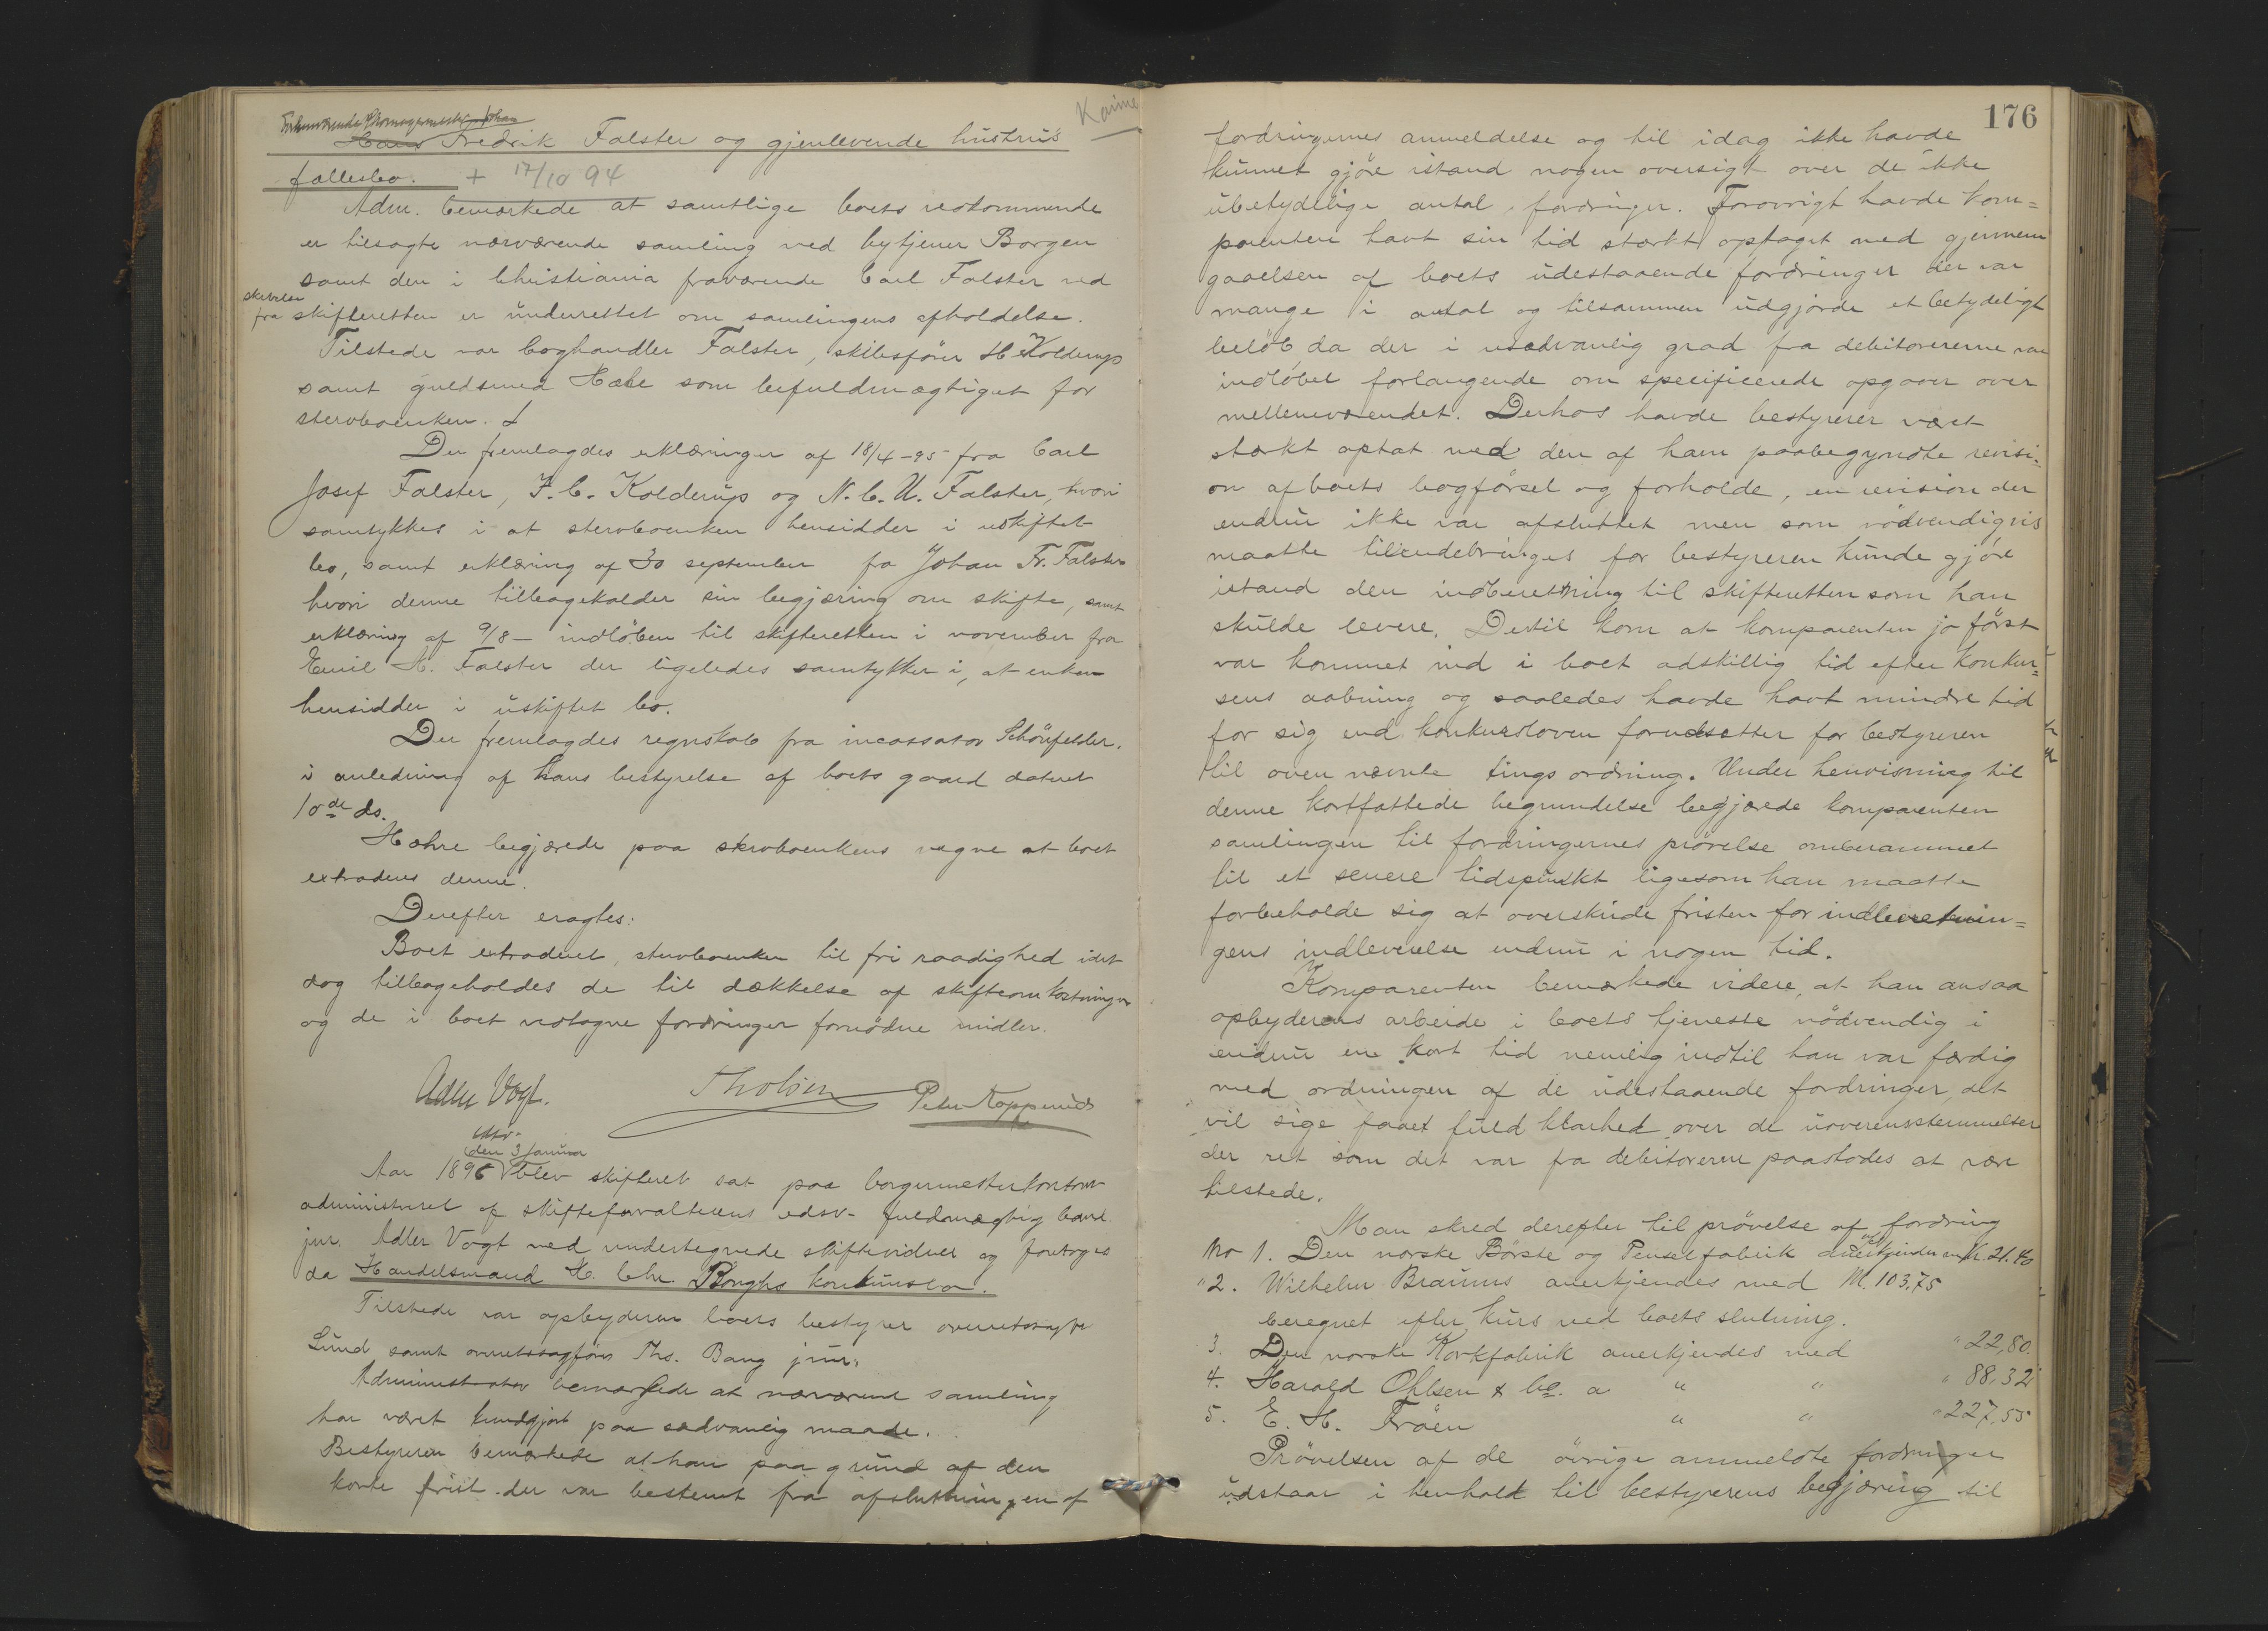 Karine
Forhenværende Skomagermester Johan
Hans Fredrik Falster og gjenlevende hustrus
fællesbo. + 17/10 94
Adm. bemærkede at samtlige boets vedkommende
er tilsagte nærværende samling ved bytjener Borgen
samt den i Christiania fraværende Carl Falster ved
skrivelse
fra skifteretten er underrettet om samlingens afholdelse.
Tilstede var boghandler Falster, skibsfører H Kolderup
samt guldsmed Hæhre som befuldmægtiget for
stervboenken.
Der fremlagdes erklæringer af 18/4-95 fra Carl
Josef Falster, F. C. Kolderup og N. C. U. Falster, hvori
samtykkes i at stervboenken hensidder i uskiftet
bo, samt erklæring af 30 september fra Johan Fr. Falster
hvori denne tilbagekalder sin begjæring om skifte, samt
erklæring af 9/8 – indløben til skifteretten i november fra
Emil H. Falster der ligeledes samtykker i, at enken
hensidder i uskiftet bo.
Der fremlagdes regnskab fra incassator Schönfelder.
i anledning af hans bestyrelse af boets gaard datert
10de ds.
Hæhre begjærede paa stervboenkens vegne at boet
extraderes denne.
Derefter eragtes:
Boet extraderet stervboenken til fri raadighed idet
dog tilbageholdes de til dækkelse af skifteomkostninger
og de i boet vedtagne fordringer fornødne midler.
Adler Vogt. Tholsen Peder Kopperud
den 3 januar
Aar 1896 blev skifteret sat paa borgermesterkontoret
administreret af skifteforvalterens edsv. fuldmægtig cand.
jur. Adler Vogt ved undertegnede skiftevidner og foretoges
da Handelsmand H. Chr. Borghs konkursbo.
Tilstede var opbyderen boets bestyrer overretssagfør
Lund samt overretssagfører Ths. Bang jun.
Administrator bemærkede at nærværende samling
har været kundgjort paa sædvanlig maade.
Bestyreren bemærkede at han paa grund af den
korte frist der var bestemt fra afslutningen af
176
fordringernes anmeldelse og til idag ikke havde
kunnet gjøre istand nogen oversigt over de ikke
ubetydelige antal fordringer. Forøvrigt havde kom=
parenten havt sin tid stærkt optaget med gjennem
gaaelsen af boets udestaaende fordringer der var
mange i antal og tilsammen udgjorde et betydeligt
beløb da der i usædvanlig grad fra debitorererne var
indløbet forlangende om specificerede opgaver over
mellemværendet. Derhos havde bestyrer været
stærkt optat med den af ham paabegyndte revisi=
on af boets bogførsel og forholde, en revision der
endnu ikke var afsluttet men som nødvendigvis
maatte tilendebringes før bestyreren kunde gjøre
istand den indberetning til skifteretten som han
skulde levere. Dertil kom at komparenten jo først
var kommet ind i boet adskillig tid efter konkur=
sens aabning og saaledes havde havt mindre tid
for sig end konkursloven forudsætter for bestyreren
til oven nævnte tings ordning. Under henvisning til
denne kortfattede begrundelse begjærede komparenten
samlingen til fordringernes prøvelse omberammet
til et senere tidspunkt ligesom han maatte
forbeholde sig at overskride fristen for indberetnin=
gens indleverelse endnu i nogen tid.
Komparenten bemærkede videre, at han ansaa
opbyderens arbeide i boets tjeneste nødvendig i
endnu en kort tid nemlig indtil han var færdig
med ordningen af de udestaaende fordringer, det
vil sige faaet fuld klarhed over de uoverensstemmelser
der ret som det var fra debitorerne paastodes at være
tilstede.
Man skred derefter til prøvelse af fordring
No 1. Den norske Børste og Penselfabrik anerkjendes m Kr. 21.40
" 2. Wilhelm Brauns anerkjendes med M. 103.75
beregnet efter kurs ved boets slutning.
3. Den norske Korkfabrik anerkjendes med " 22,80.
4. Harald Ohlsen & Co. a " " " 88,32
5. E. H. Frøen " " " 227,55
Prøvelsen af de øvrige anmeldte fordringer
udstaar i henhold til bestyrerens begjæring til